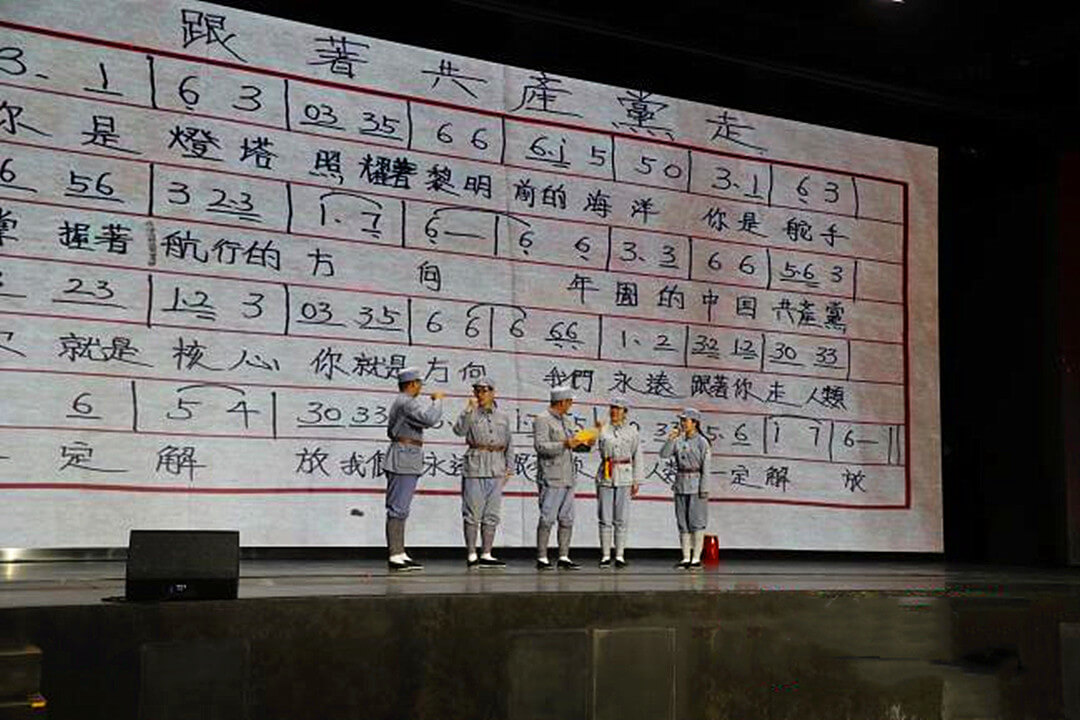 跟著共產黨走
3. 1 | 6 3 | 03 35 | 6 6 | 6.i 5 | 5 0 | 3. 1 | 6 3
你是燈塔照耀著黎明前的海洋你是舵手
6 56 | 3 2.3 | 1. 7 | 6 — | 6 6 | 3. 3 | 6 6 | 5.6 3
掌握著航行的方向年圍的中国共產黨
23 | 1.2 3 | 03 35 | 6 6 | 6 66 | 1. 2 | 32 12 | 30 33
就是核心你就是方向我們永遠跟著你走人類
6 | 5 4 | 30 33 5.6 | 1 7 | 6—
一定解放我們永遠人類一定解放